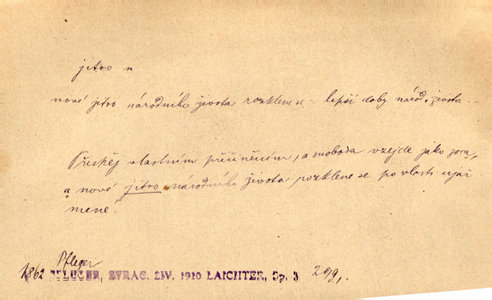 jitro n
nové jitro národního života rozklene se – lepší doby národ. života
vlastním přičiněním, a svoboda vzejde jako zora,
a nové jitro národního života rozklene se po vlasti ujař
mené.
Pfleger
1862 PFLEGER, ZTRAC. ŽIV. 1910 LAICHTER, Sp. 3 299,